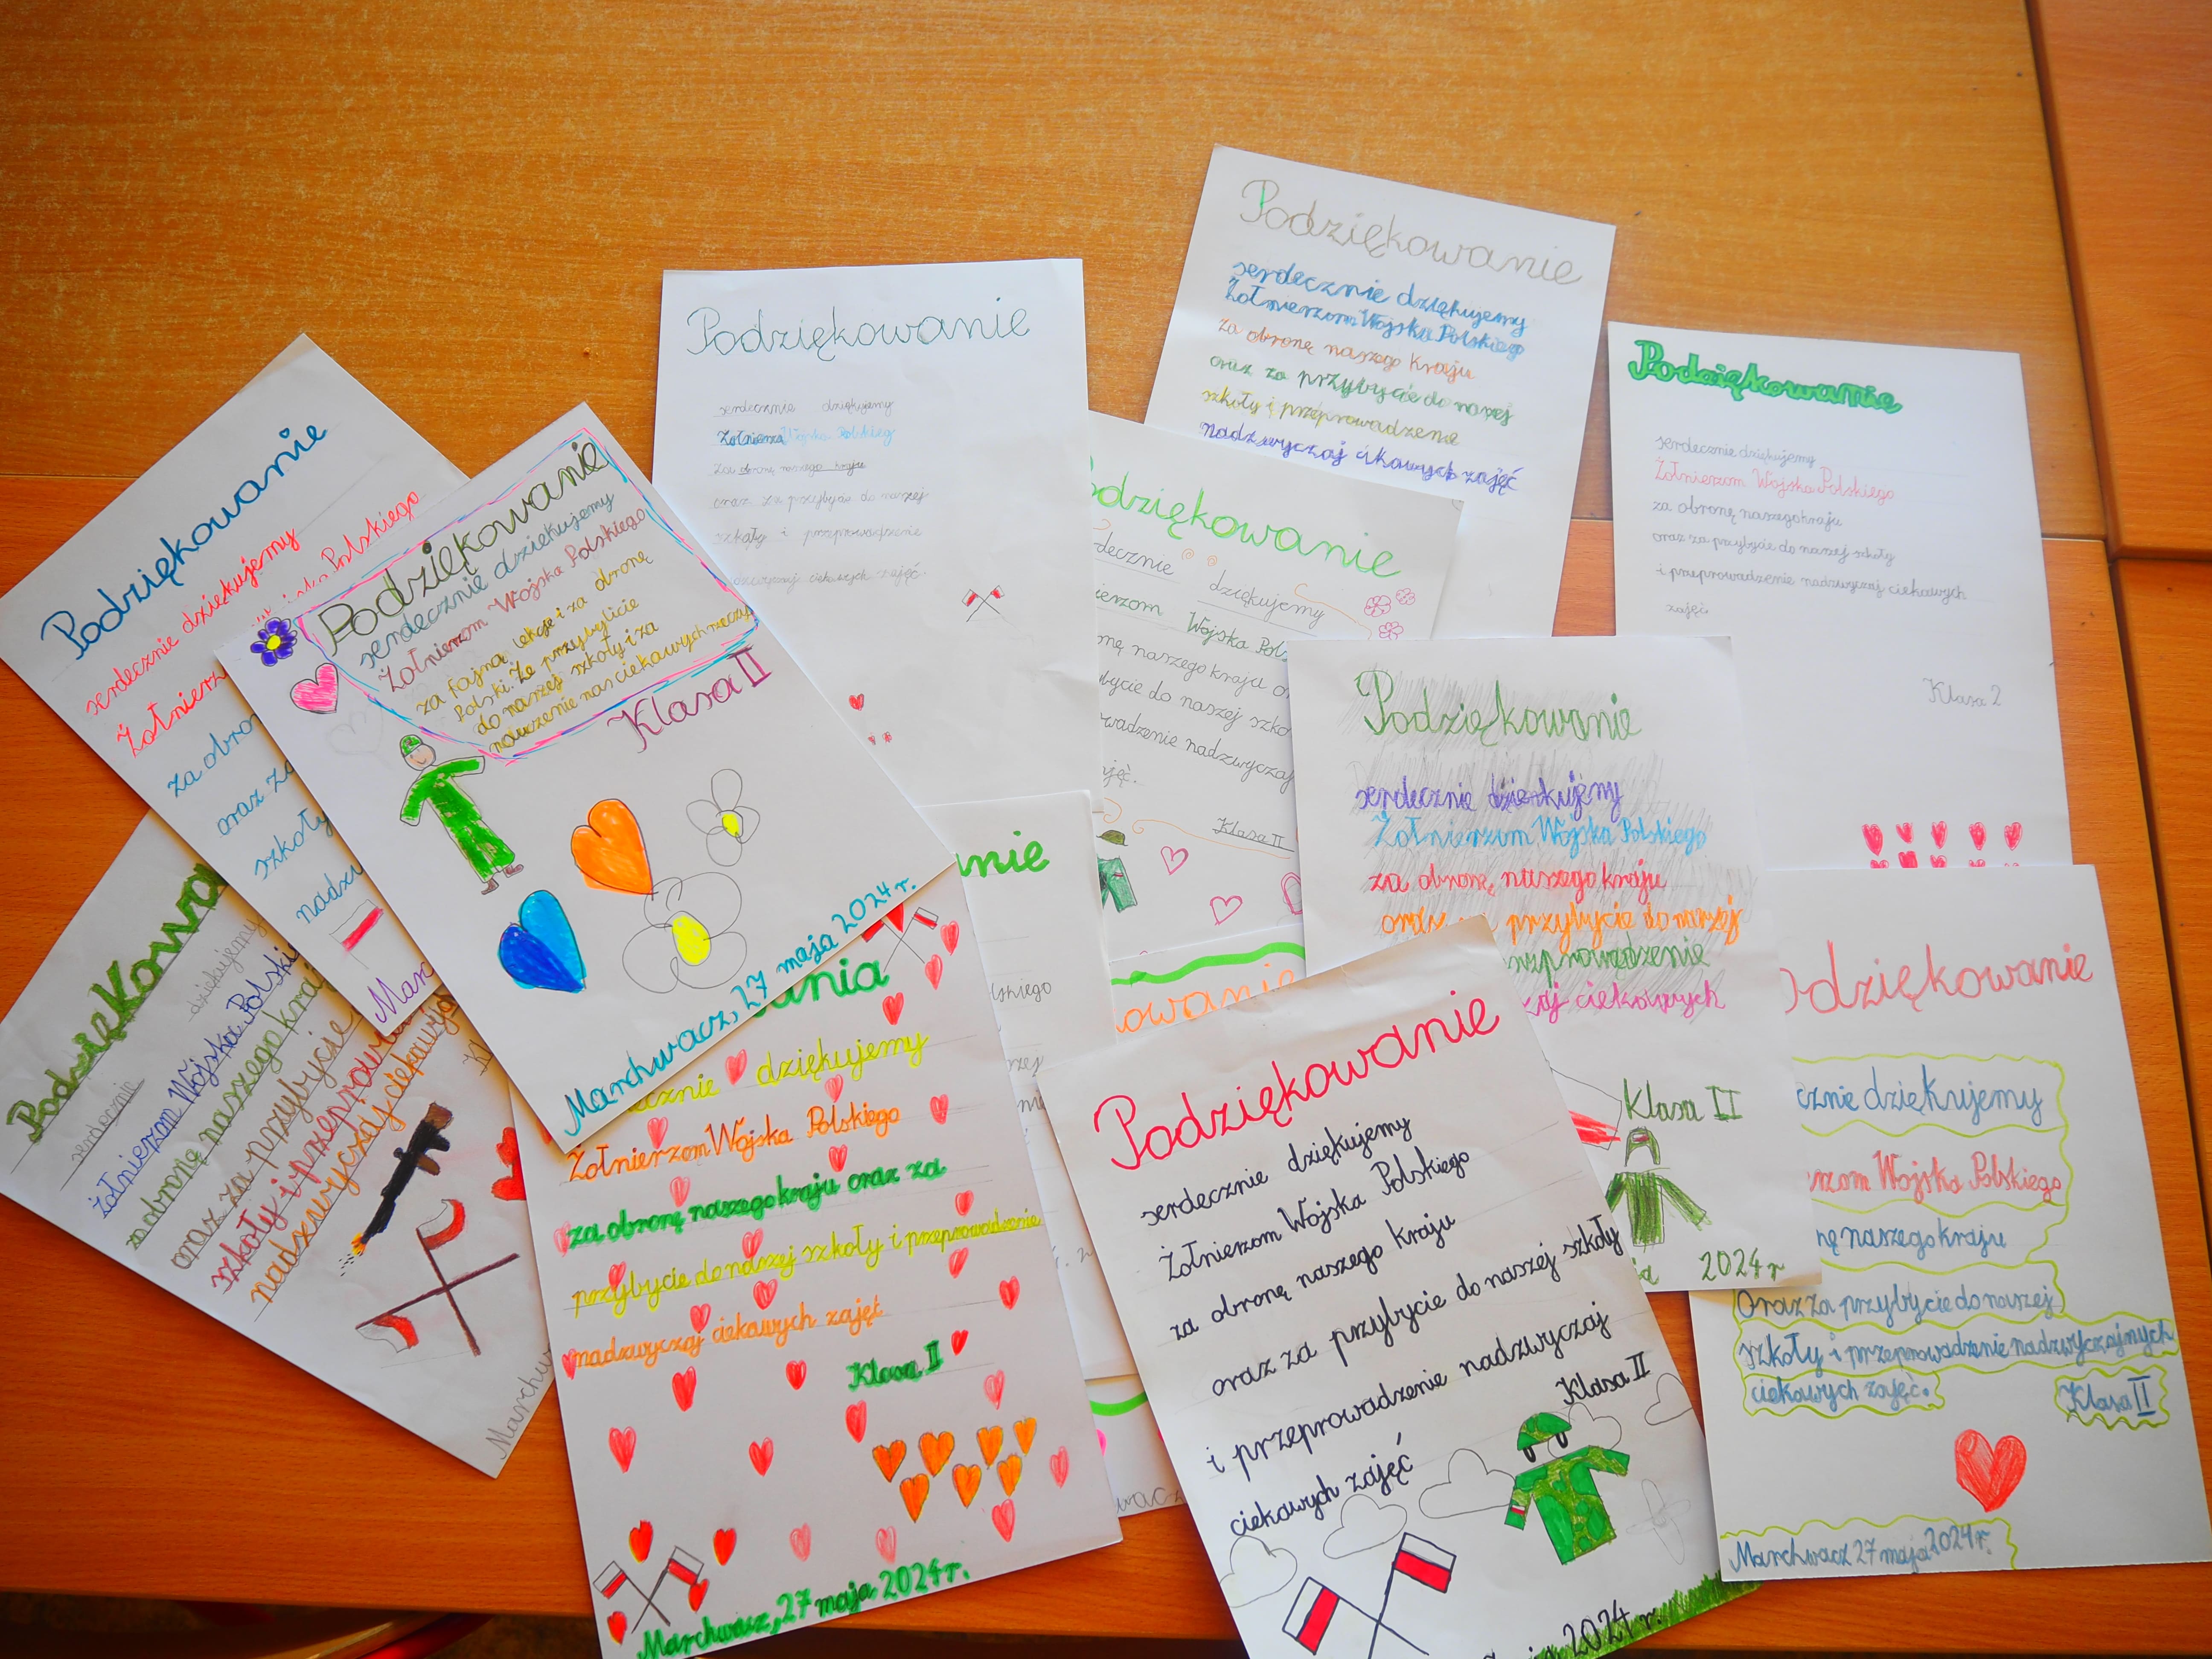 Podziękowanie
serdecznie dziękujemy
Żołnierzom Wojska Polskiego
za obronę naszego kraju
oraz za przybycie do naszej
szkoły i przeprowadzene
nadzwyczaj cikawych zajęć
Podziękowanie
serdecznie dziękujemy
Żołnierza Wojska Polskieg
Za obronę naszego kraju
oraz za przybycie do naszej
szkoły i przeprowadzenie
ciekawych zajęć.
Podziękowanie
serdecznie dziękujemy
Żołnierzom Wojska Polskiego
za obronę naszego kraju
oraz za przybycie do naszej szkoły
i przeprowadzenie nadzwyczaj ciekawych
zajęć.
Klasa 2
Podziękowanie
serdecznie dziękujemy
Polskiego
za
oraz
szkoły
Podziękowanie
serdecznie dziekujemy
Żołnierzom Wojska Polskiego
za fajną lekcje i za obronę
Polski. Że przybyliście
do naszej szkoły i za
nauczenie nas ciekawych rzeczy
Klasa II
Marchwacz, 27 maja 2024 r.
odziękowanie
decznie dziękujemy
ierzom Wojska Pol
nę naszego kraju o
bycie do naszej szko
wadzenie nadzwyczaj
jęć.
Klasa II
Podziękowanie
serdecznie dziękujemy
Żołnierzom Wojska Polskiego
za obronę naszego kraju
oraz przybycie do naszej
ciekawych
Klasa II
2024 r
Podziękowa
serdecznie dziękujemy
Żołnierzom Wojska Polski
za obronę naszego kraj
oraz za przybycie
szkoły i przeprowad
nadzwyczaj ciekawyc
nie
owanie
ania
cznie dziękujemy
Żołnierzom Wojska Polskiego
za obronę naszego kraju oraz za
przybycie do naszej szkoły i przeprowadzenie
nadzwyczaj ciekawych zajęć
Klasa II
Marchwacz, 27 maja 2024 r.
Podziękowanie
serdecznie dziękujemy
Żołnierzom Wojska Polskiego
za obronę naszego kraju
oraz za przybycie do naszej szkoły
i przeprowadzenie nadzwyczaj
ciekawych zajęć
Klasa II
2024 r.
odziękowanie
cznie dziękujemy
rzom Wojska Polskiego
nę naszego kraju
Oraz za przybycie do naszej
szkoły i przeprowadzenie nadzwyczajnych
ciekawych zajęć.
Klasa II
Marchwacz 27 maja 2024 r.